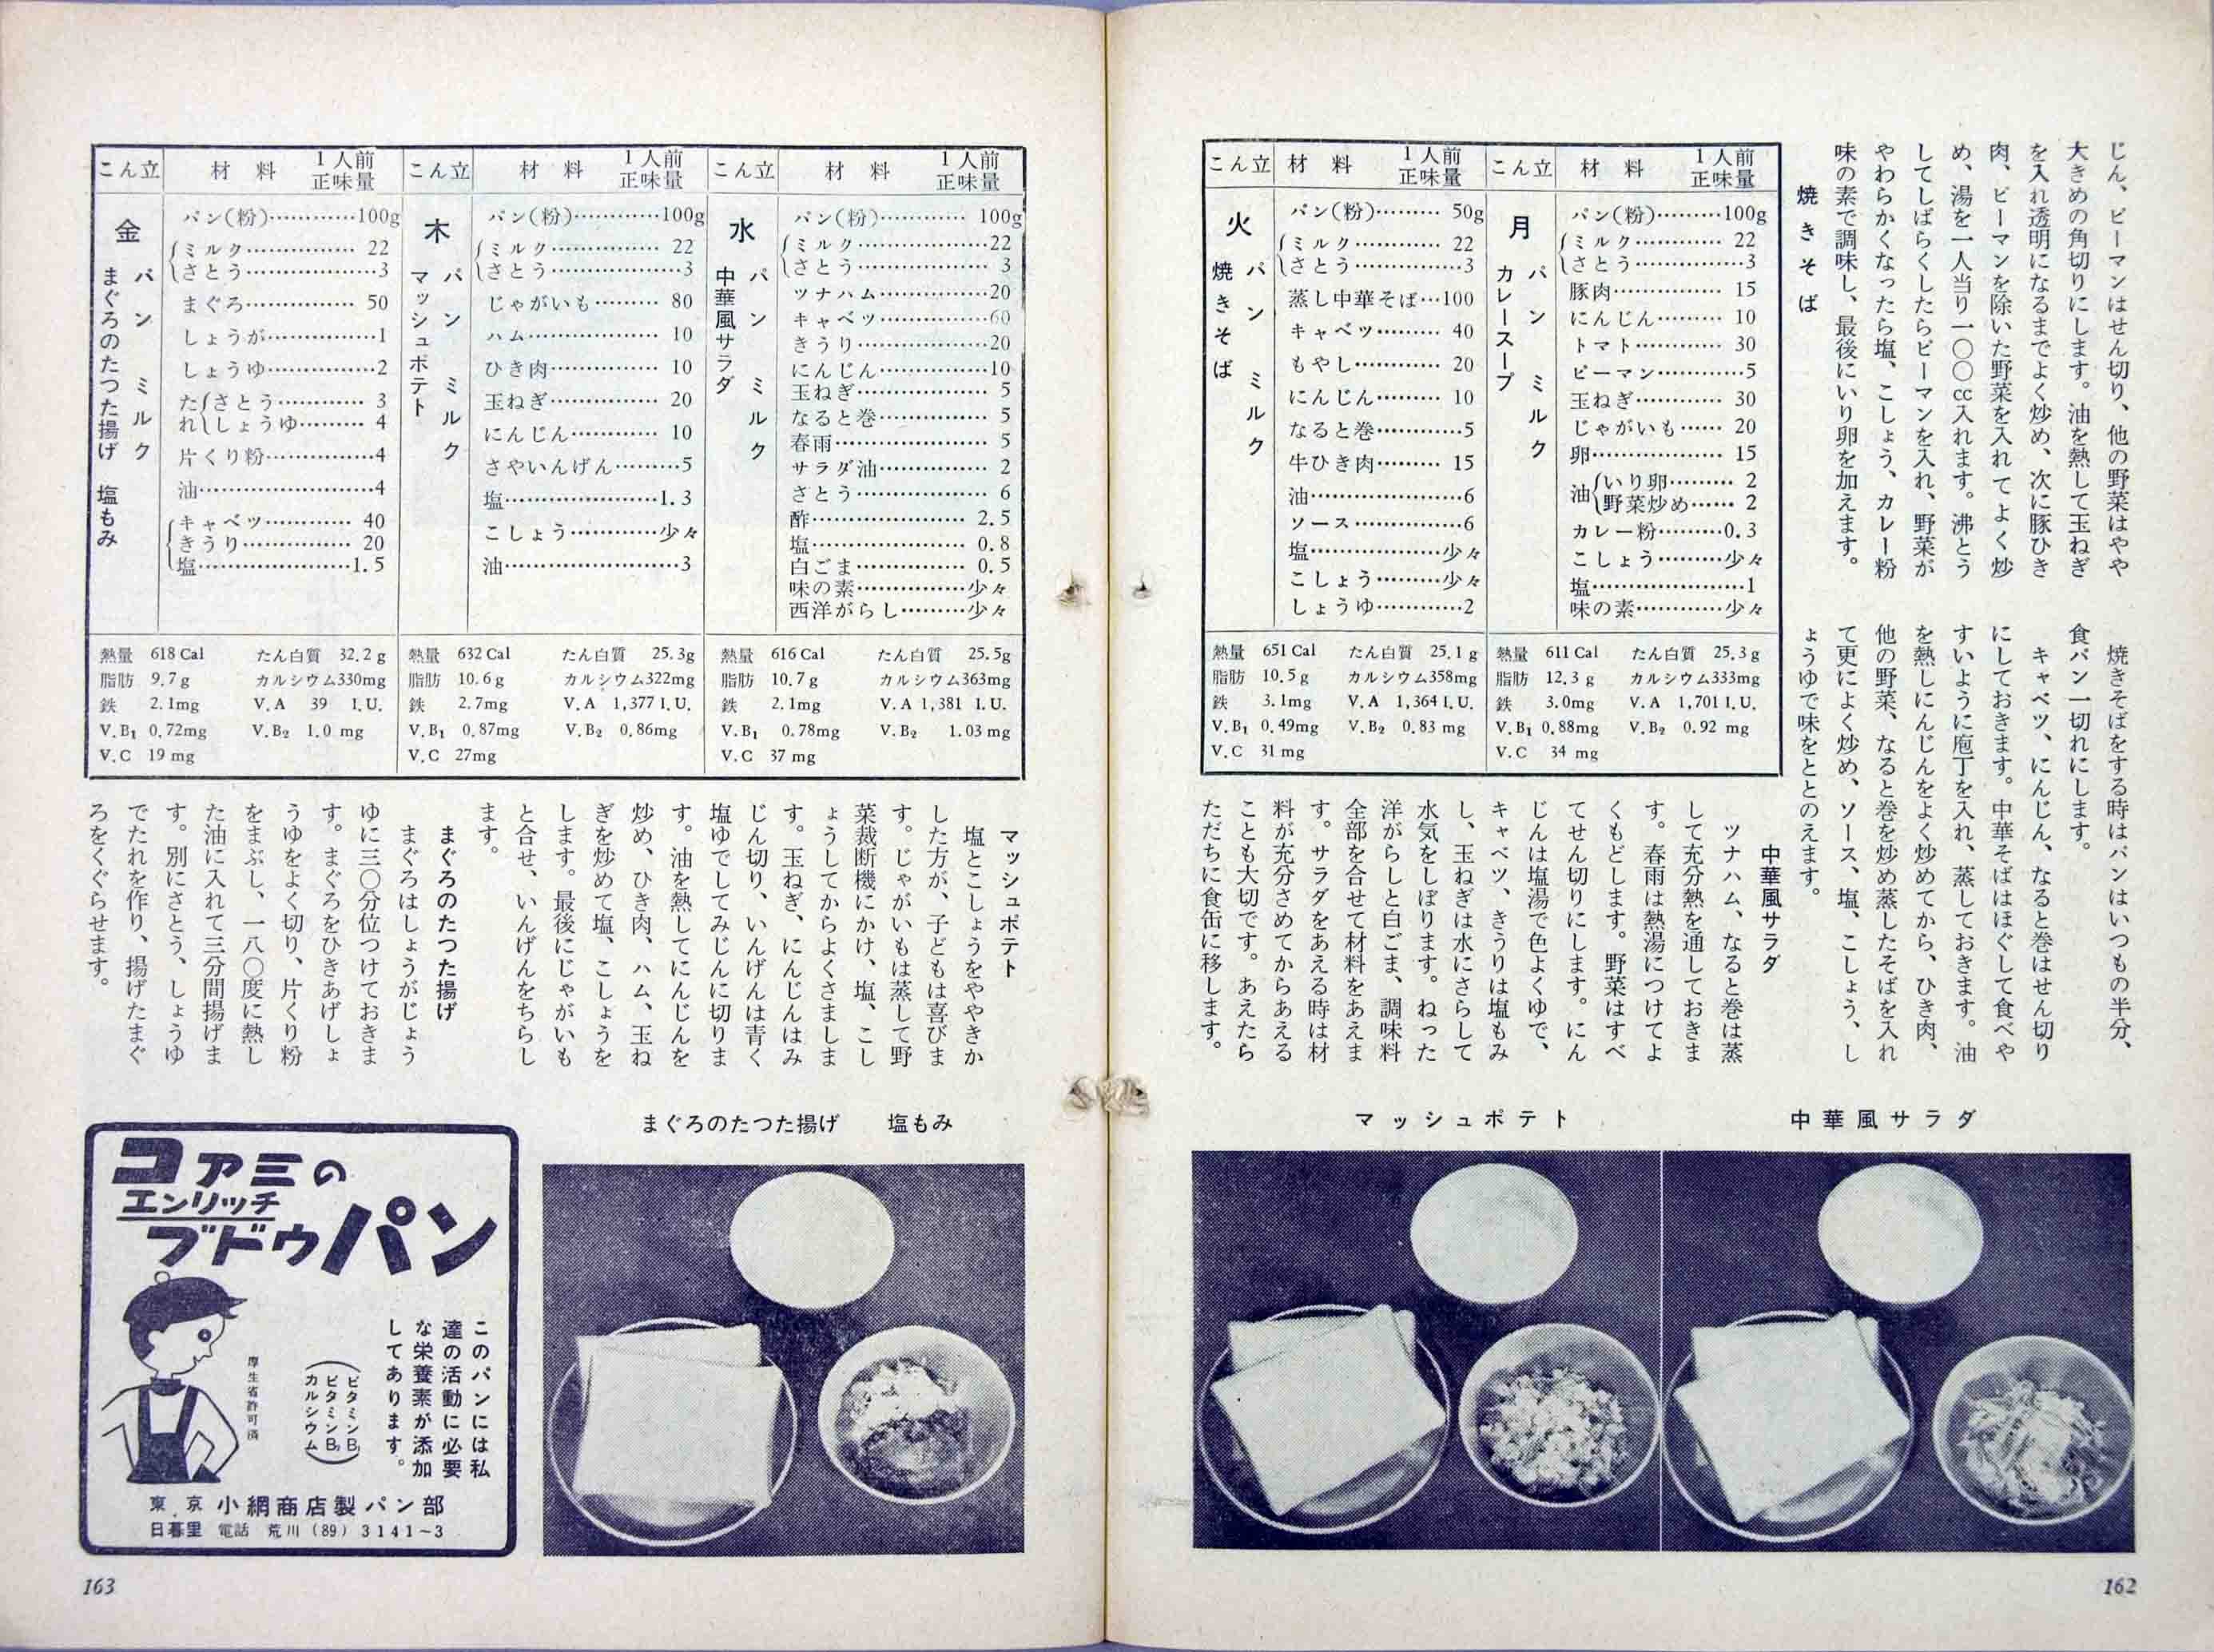 じん、ピーマンはせん切り、他の野菜はやや
大きめの角切りにします。油を熱して玉ねぎ
を入れ透明になるまでよく炒め、次に豚ひき
肉、ピーマンを除いた野菜を入れてよく炒
め、湯を一人当り一〇〇cc入れます。沸とう
してしばらくしたらピーマンを入れ、野菜が
やわらかくなったら塩、こしょう、カレー粉
味の素で調味し、最後にいり卵を加えます。
焼きそば
焼きそばをする時はパンはいつもの半分、
食パン一切れにします。
キャベツ、にんじん、なると巻はせん切り
にしておきます。中華そばはほぐして食べや
すいように庖丁を入れ、蒸しておきます。油
を熱しにんじんをよく炒めてから、ひき肉、
他の野菜、なると巻を炒め蒸したそばを入れ
て更によく炒め、ソース、塩、こしょう、し
ょうゆで味をととのえます。
こん立 材料 1人前正味量
月
パン ミルク
カレースープ
パン(粉)………100g
ミルク………… 22
さとう……………3
豚肉…………… 15
にんじん……… 10
トマト………… 30
ピーマン…………5
玉ねぎ………… 30
じゃがいも…… 20
卵……………… 15
油{いり卵……… 2
野菜炒め…… 2
カレー粉………0.3
こしょう………少々
塩…………………1
味の素…………少々
熱量 611 Cal たん白質 25.3 g
脂肪 12.3 g カルシウム333mg
鉄 3.0mg V.A 1,701 I.U.
V.B₁ 0.88mg V.B₂ 0.92 mg
V.C 34 mg
こん立 材料 1人前正味量
火
パン ミルク
焼きそば
パン(粉)……… 50g
ミルク………… 22
さとう……………3
蒸し中華そば…100
キャベツ……… 40
もやし………… 20
にんじん……… 10
なると巻…………5
牛ひき肉……… 15
油…………………6
ソース……………6
塩………………少々
こしょう………少々
しょうゆ…………2
熱量 651 Cal たん白質 25.1 g
脂肪 10.5 g カルシウム358mg
鉄 3.1mg V.A 1,364 I.U.
V.B₁ 0.49mg V.B₂ 0.83 mg
V.C 31 mg
中華風サラダ
ツナハム、なると巻は蒸
して充分熱を通しておきま
す。春雨は熱湯につけてよ
くもどします。野菜はすべ
てせん切りにします。にん
じんは塩湯で色よくゆで、
キャベツ、きうりは塩もみ
し、玉ねぎは水にさらして
水気をしぼります。ねった
洋がらしと白ごま、調味料
全部を合せて材料をあえま
す。サラダをあえる時は材
料が充分さめてからあえる
ことも大切です。あえたら
ただちに食缶に移します。
中華風サラダ
マッシュポテト
162
こん立 材料 1人前正味量
水
パン ミルク
中華風サラダ
パン(粉)………… 100g
ミルク………………22
さとう……………… 3
ツナハム……………20
キャベツ……………60
きうり………………20
にんじん……………10
玉ねぎ……………… 5
なると巻…………… 5
春雨………………… 5
サラダ油…………… 2
さとう……………… 6
酢………………… 2.5
塩………………… 0.8
白ごま…………… 0.5
味の素……………少々
西洋がらし………少々
熱量 616 Cal たん白質 25.5g
脂肪 10.7 g カルシウム363mg
鉄 2.1mg V.A 1,381 I.U.
V.B₁ 0.78mg V.B₂ 1.03 mg
V.C 37 mg
こん立 材料 1人前正味量
木
パン ミルク
マッシュポテト
パン(粉)…………100g
ミルク…………… 22
さとう………………3
じゃがいも……… 80
ハム……………… 10
ひき肉…………… 10
玉ねぎ…………… 20
にんじん………… 10
さやいんげん………5
塩…………………1.3
こしょう…………少々
油……………………3
熱量 632 Cal たん白質 25.3g
脂肪 10.6 g カルシウム322mg
鉄 2.7mg V.A 1,377 I.U.
V.B₁ 0.87mg V.B₂ 0.86mg
V.C 27mg
こん立 材料 1人前正味量
金
パン ミルク
まぐろのたつた揚げ 塩もみ
パン(粉)…………100g
ミルク…………… 22
さとう………………3
まぐろ…………… 50
しょうが……………1
しょうゆ……………2
たれ{さとう………… 3
しょうゆ……… 4
片くり粉……………4
油……………………4
キャベツ………… 40
きうり…………… 20
塩…………………1.5
熱量 618 Cal たん白質 32.2 g
脂肪 9.7 g カルシウム330mg
鉄 2.1mg V.A 39 I.U.
V.B₁ 0.72mg V.B₂ 1.0 mg
V.C 19 mg
マッシュポテト
塩とこしょうをややきか
した方が、子どもは喜びま
す。じゃがいもは蒸して野
菜裁断機にかけ、塩、こし
ょうしてからよくさましま
す。玉ねぎ、にんじんはみ
じん切り、いんげんは青く
塩ゆでしてみじんに切りま
す。油を熱してにんじんを
炒め、ひき肉、ハム、玉ね
ぎを炒めて塩、こしょうを
します。最後にじゃがいも
と合せ、いんげんをちらし
ます。
まぐろのたつた揚げ
まぐろはしょうがじょう
ゆに三〇分位つけておきま
す。まぐろをひきあげしょ
うゆをよく切り、片くり粉
をまぶし、一八〇度に熱し
た油に入れて三分間揚げま
す。別にさとう、しょうゆ
でたれを作り、揚げたまぐ
ろをくぐらせます。
まぐろのたつた揚げ 塩もみ
コアミの
エンリッチ
ブドウパン
このパンには私
達の活動に必要
な栄養素が添加
してあります。
(ビタミンB₁
ビタミンB₂
カルシウム)
厚生省許可済
東京 小網商店製パン部
日暮里 電話 荒川 (89) 3141~3
163